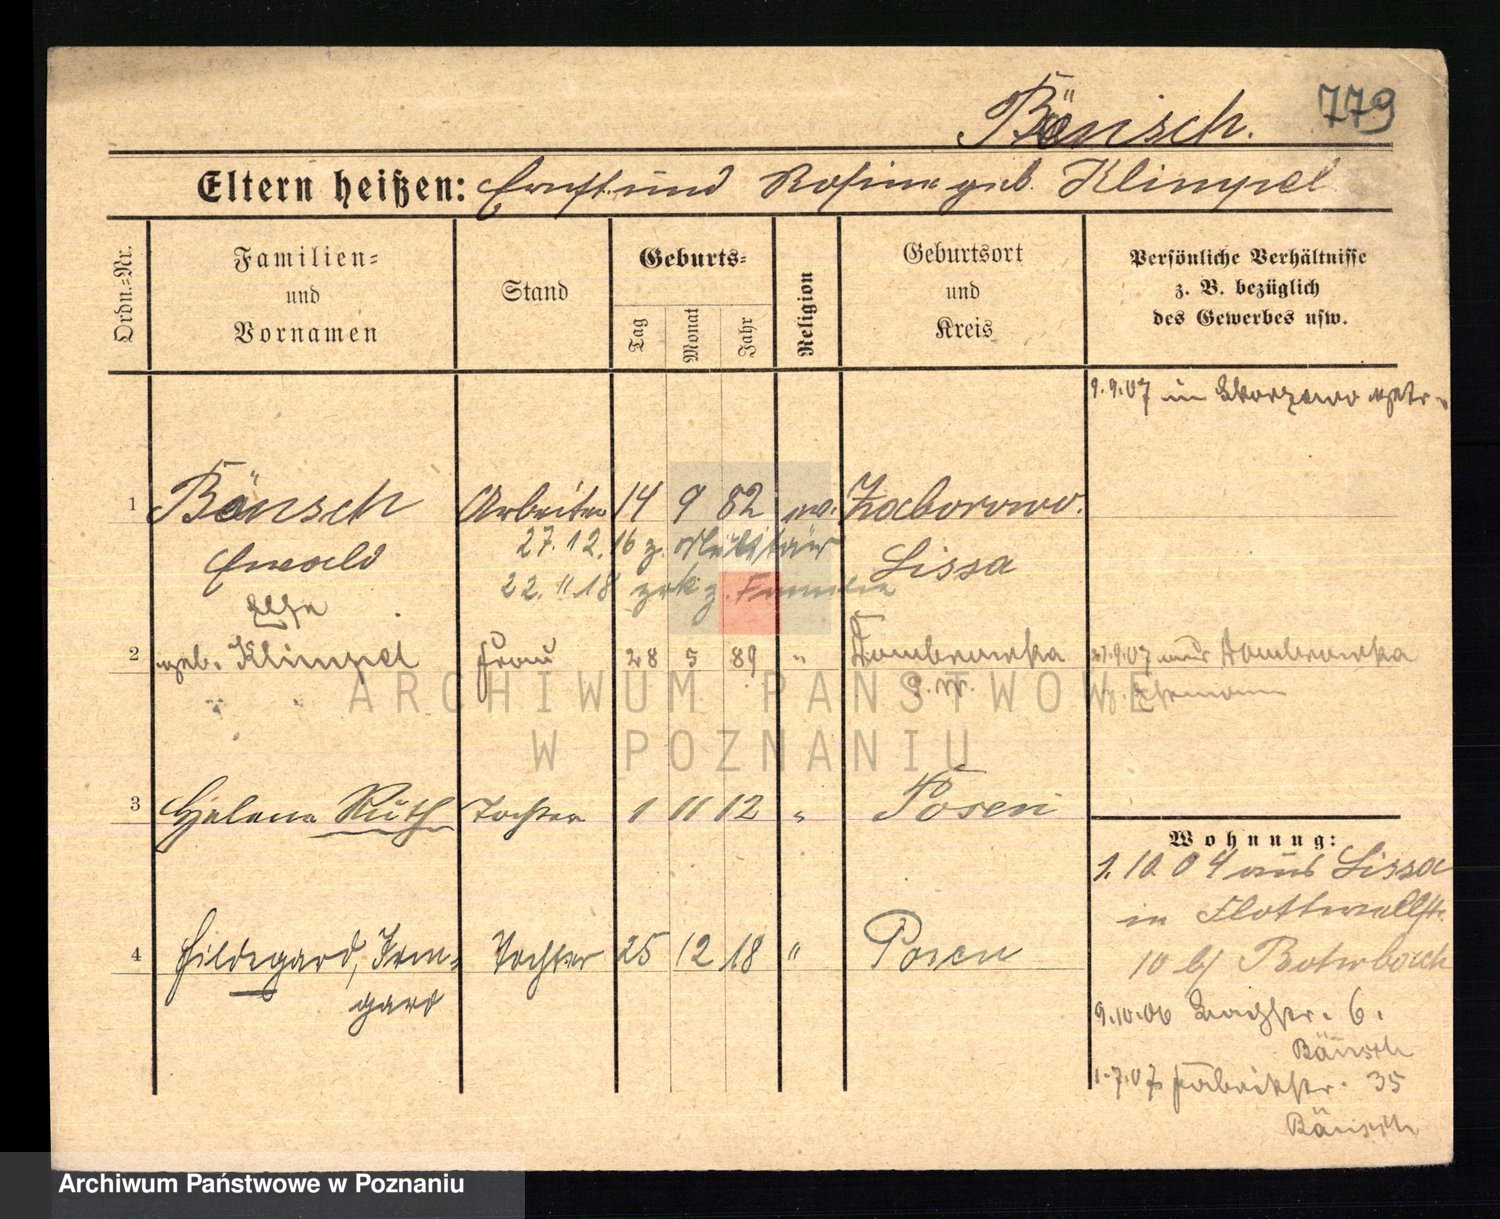 Bänsch.
779
Eltern heißen: Ernst und Rosina geb. Klimpel
Ordn.-Nr.
Familien-
und
Vornamen
Stand
Geburts-
Tag
Monat
Jahr
Religion
Geburtsort
und
Kreis
Persönliche Verhältnisse
z. B. bezüglich
des Gewerbes usw.
9.9.07 in Skorzewo getr.
1 Bänsch Arbeiter 14 9 82 ev. Zaborowo.
27.12.16 z. Militair
Ewald Lissa
22.11.18 zrk z. Familie
Else
2 geb. Klimpel Frau 28 5 89 " Dombrowka
P. W.
21.9.07 aus Dombrowka
3 Helene Ruth Tochter 1 11 12 " Posen
4 Hildegard, Irm-
gard
Tochter 25 12 18 " Posen
Wohnung:
1.10.04 aus Lissa
in Flottwellstr.
10 b/
9.10.06 6.
Bänsch
1.7.07 Fabrikstr. 35
Bänsch
ARCHIWUM PAŃSTWOWE
W POZNANIU
Archiwum Państwowe w Poznaniu